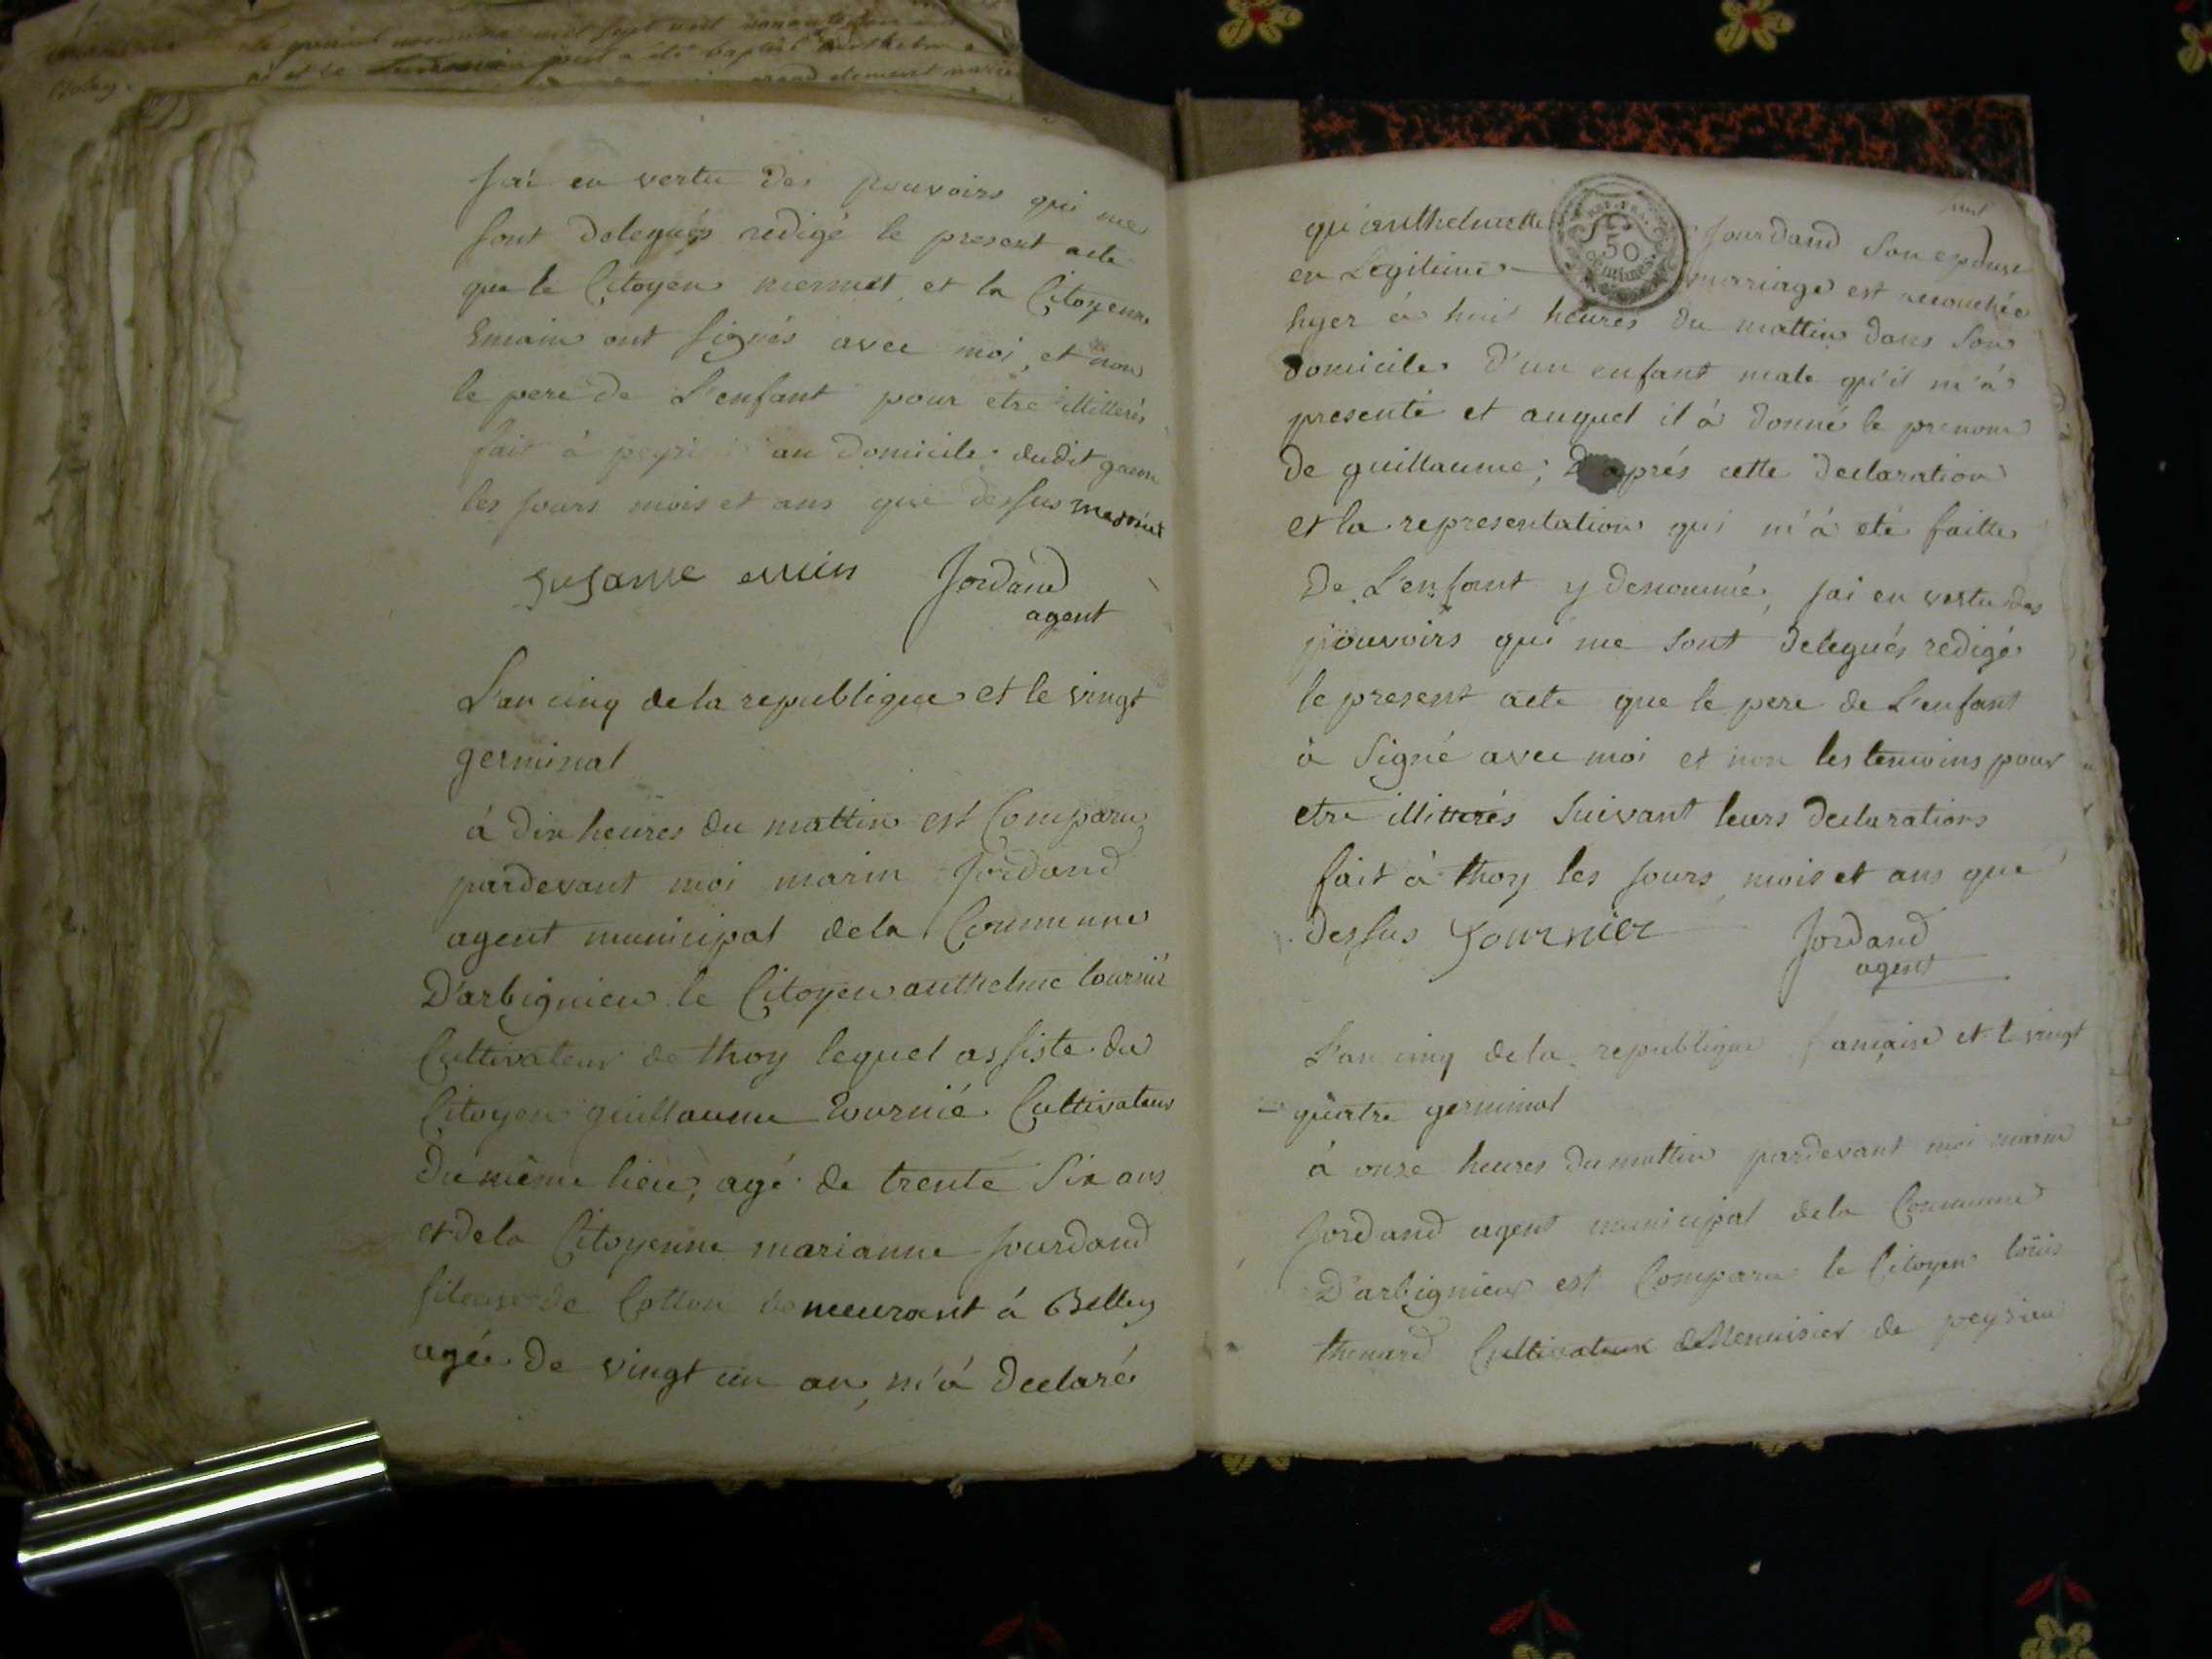 jai en vertu des pouvoirs qui me
sont delegués redigé le present acte
que le Citoyen mermet et la Citoyenne
Emain ont signés avec moi, et non
le pere de L'enfant pour etre illitterés
fait à au domicile dudit
les jours mois et ans que dessus mermet
Susanne emin Jordand
agent
L'an cinq de la republique et le vingt
germinal
à dix heures du mattin est Comparu
pardevant moi marin Jordand
agent municipal de la Commune
D'arbignieu le Citoyen anthelme
Cultivateur de thoy lequel assisté du
Citoyen guillaume Cultivateur
du même lieu, agé de trente six ans
et de la Citoyenne marianne jourdand
fileuse de Cotton demeurant à Belley
agée de vingt un an, m'à declaré
qu'anthelmette jourdand son epouse
en Legitime mariage est accouchée
hyer à huit heures du mattin dans son
domicile D'un enfant male qu'il m'à
presenté et auquel il à donné le prenom
de guillaume; D'aprés cette declaration
et la representation qui m'à eté faitte
de L'enfant y denommé, jai en vertu des
pouvoirs qui me sont delegués redigé
le present acte que le pere de L'enfant
à signé avec moi et non les temoins pour
etre illitterés suivant leurs declarations
fait à thoy les jours, mois et ans que
dessus fournier Jordand
agent
L'an cinq de la republique française et le vingt
quatre germinal
à onze heures du mattin pardevant moi marin
Jordand agent municipal de la Commune
D'arbignieu est Comparu le Citoyen loüis
thenard Cultivateur et Menuisier de peyzieu
REP. FRA.
50
centimes